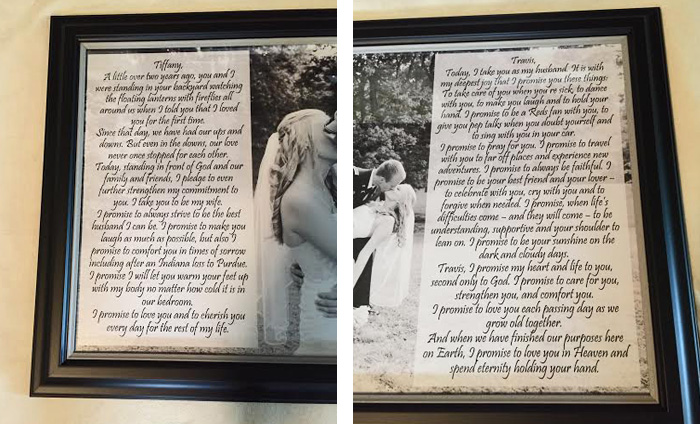 Tiffany,
A little over two years ago, you and I
were standing in your backyard watching
the floating lanterns with fireflies all
around us when I told you that I loved
you for the first time.
Since that day, we have had our ups and
downs. But even in the downs, our love
never once stopped for each other.
Today, standing in front of God and our
family and friends, I pledge to even
further strengthen my commitment to
you. I take you to be my wife.
I promise to always strive to be the best
husband I can be. I promise to make you
laugh as much as possible, but also I
promise to comfort you in times of sorrow
including after an Indiana loss to Purdue.
I promise I will let you warm your feet up
with my body no matter how cold it is in
our bedroom.
I promise to love you and to cherish you
every day for the rest of my life.
Travis,
Today, I take you as my husband. It is with
my deepest joy that I promise you these things:
To take care of you when you're sick, to dance
with you, to make you laugh and to hold your
hand. I promise to be a Reds fan with you, to
give you pep talks when you doubt yourself and
to sing with you in your car.
I promise to pray for you. I promise to travel
with you to far off places and experience new
adventures. I promise to always be faithful. I
promise to be your best friend and your lover –
to celebrate with you, cry with you and to
forgive when needed. I promise, when life's
difficulties come – and they will come – to be
understanding, supportive and your shoulder to
lean on. I promise to be your sunshine on the
dark and cloudy days.
Travis, I promise my heart and life to you,
second only to God. I promise to care for you,
strengthen you, and comfort you.
I promise to love you each passing day as we
grow old together.
And when we have finished our purposes here
on Earth, I promise to love you in Heaven and
spend eternity holding your hand.